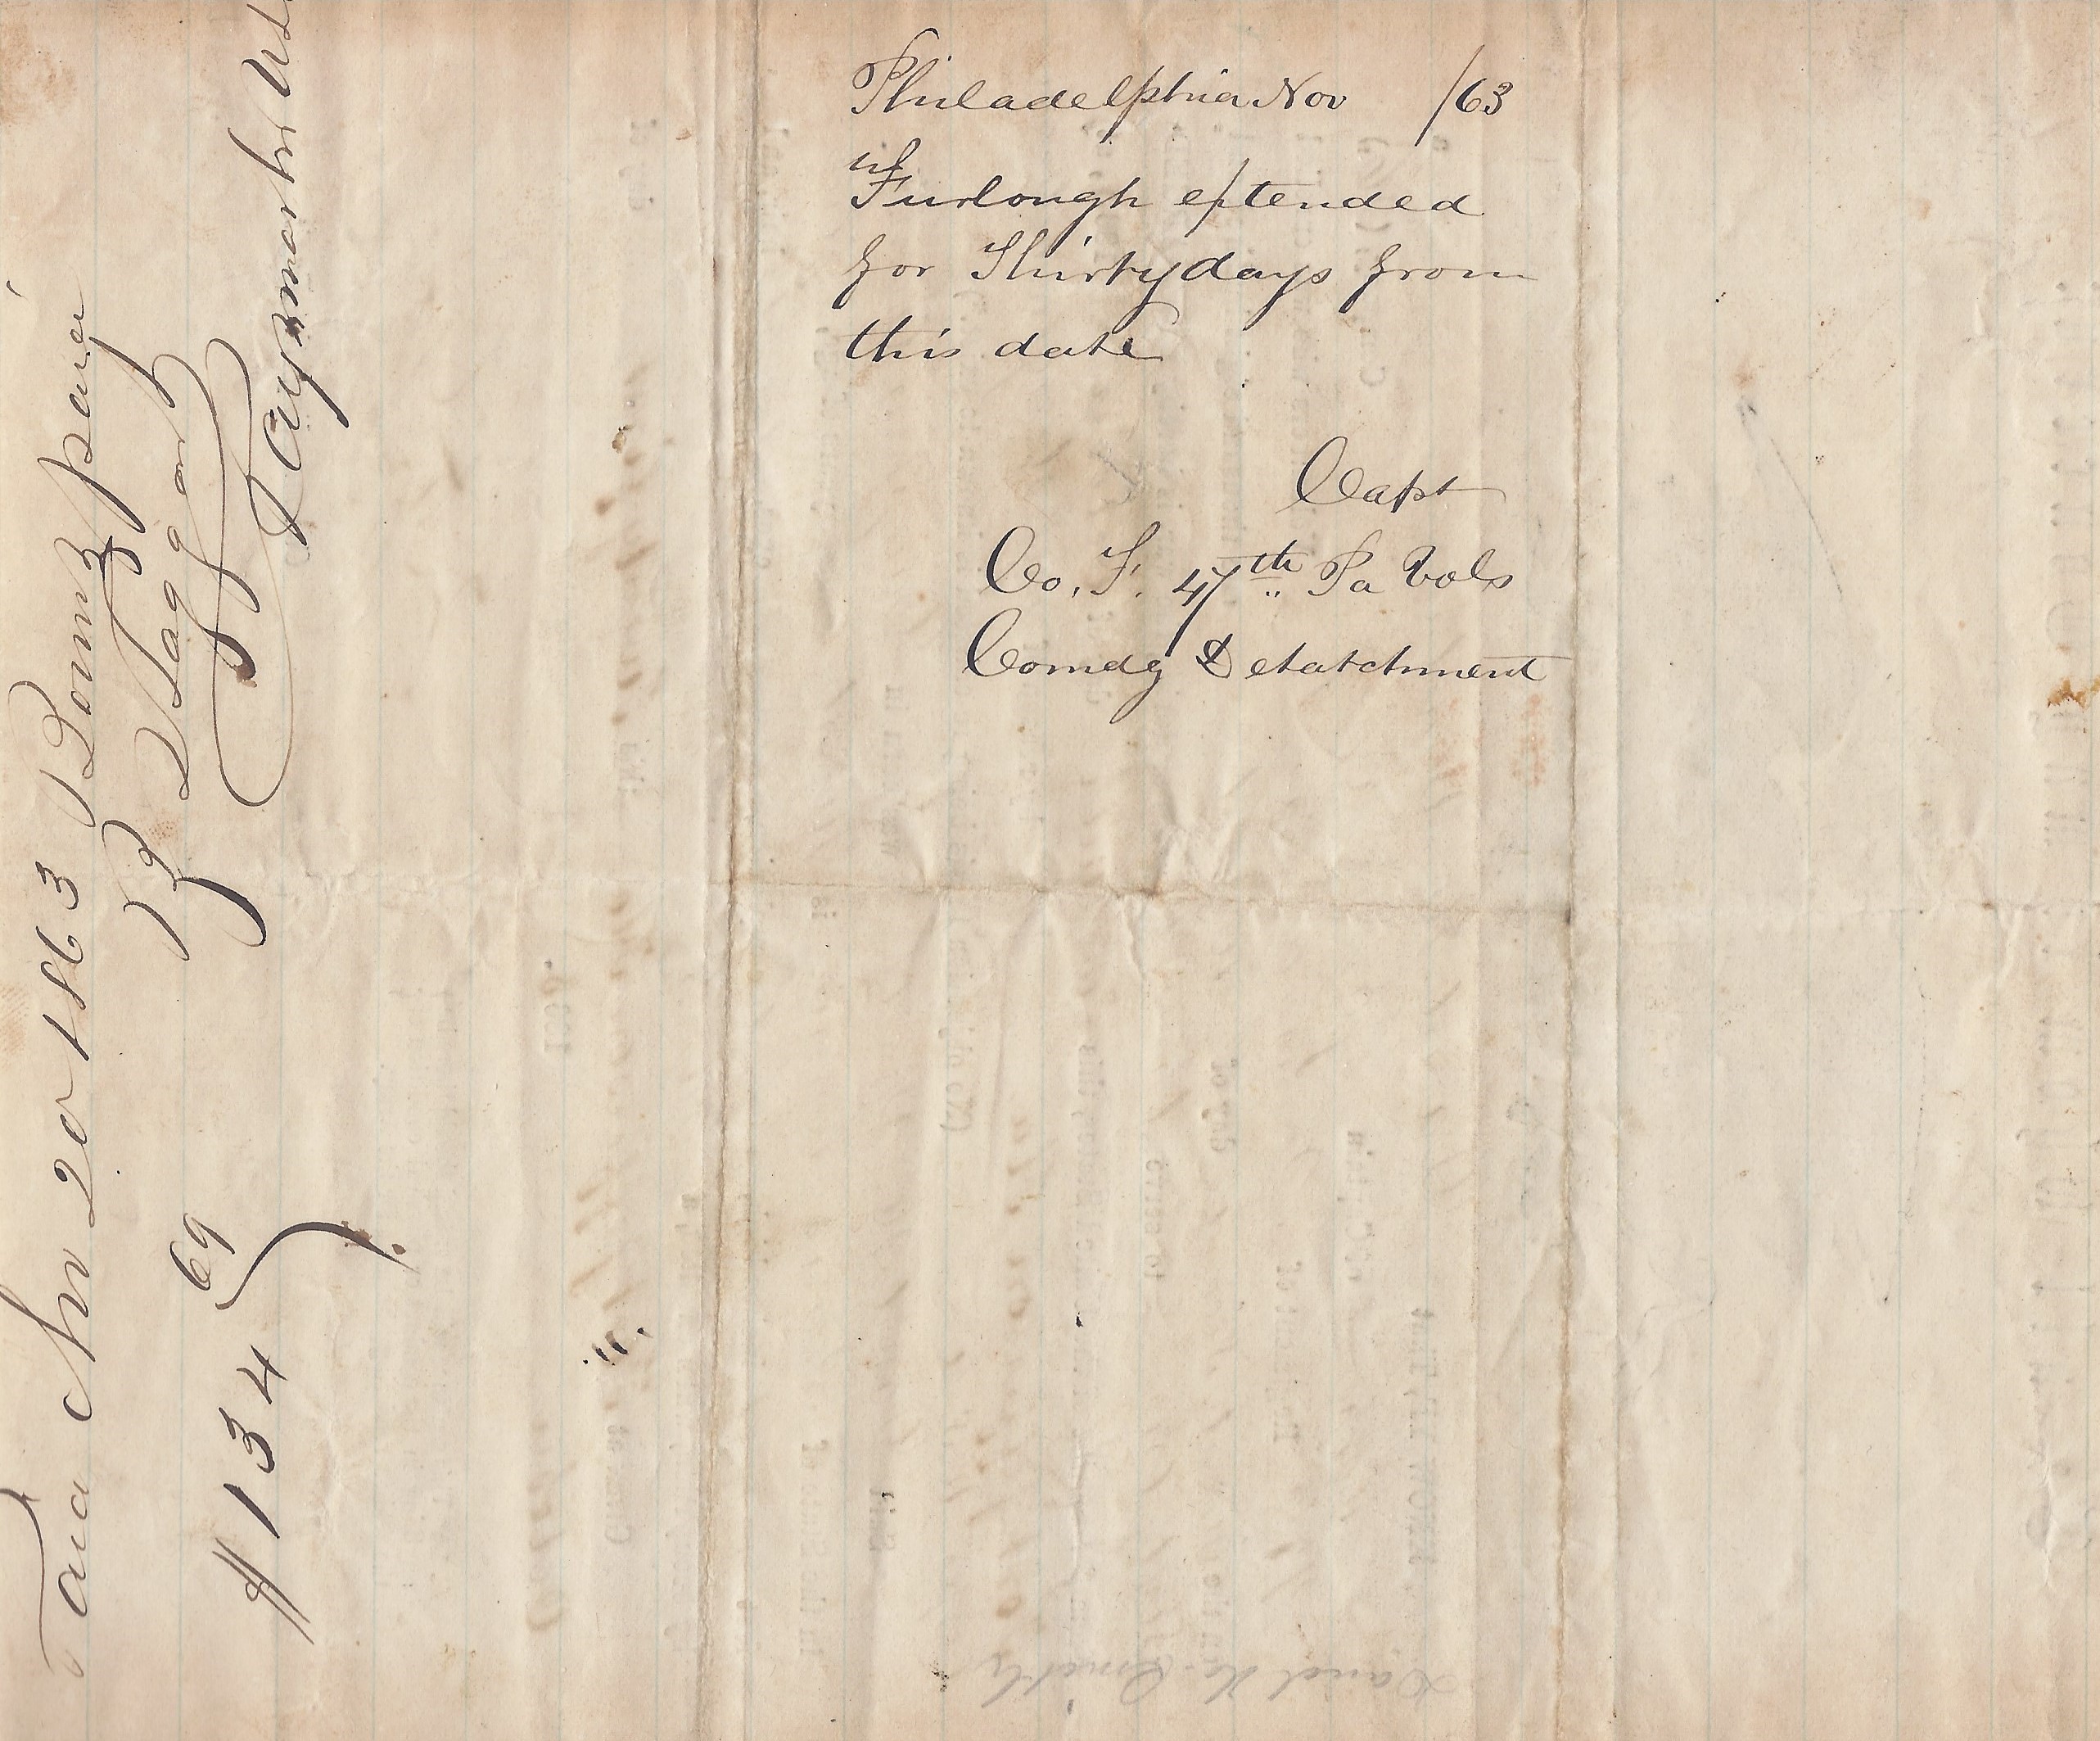 Philadelphia Nov /63
Furlough extended
for Thirty days from
this date
Capt
Co. F. 47th Pa Vols
Comdg Detatchment
Paid Nov 20 1863 Bounty paid
$134 69
By
Taggart
Paymaster
David H. Smith